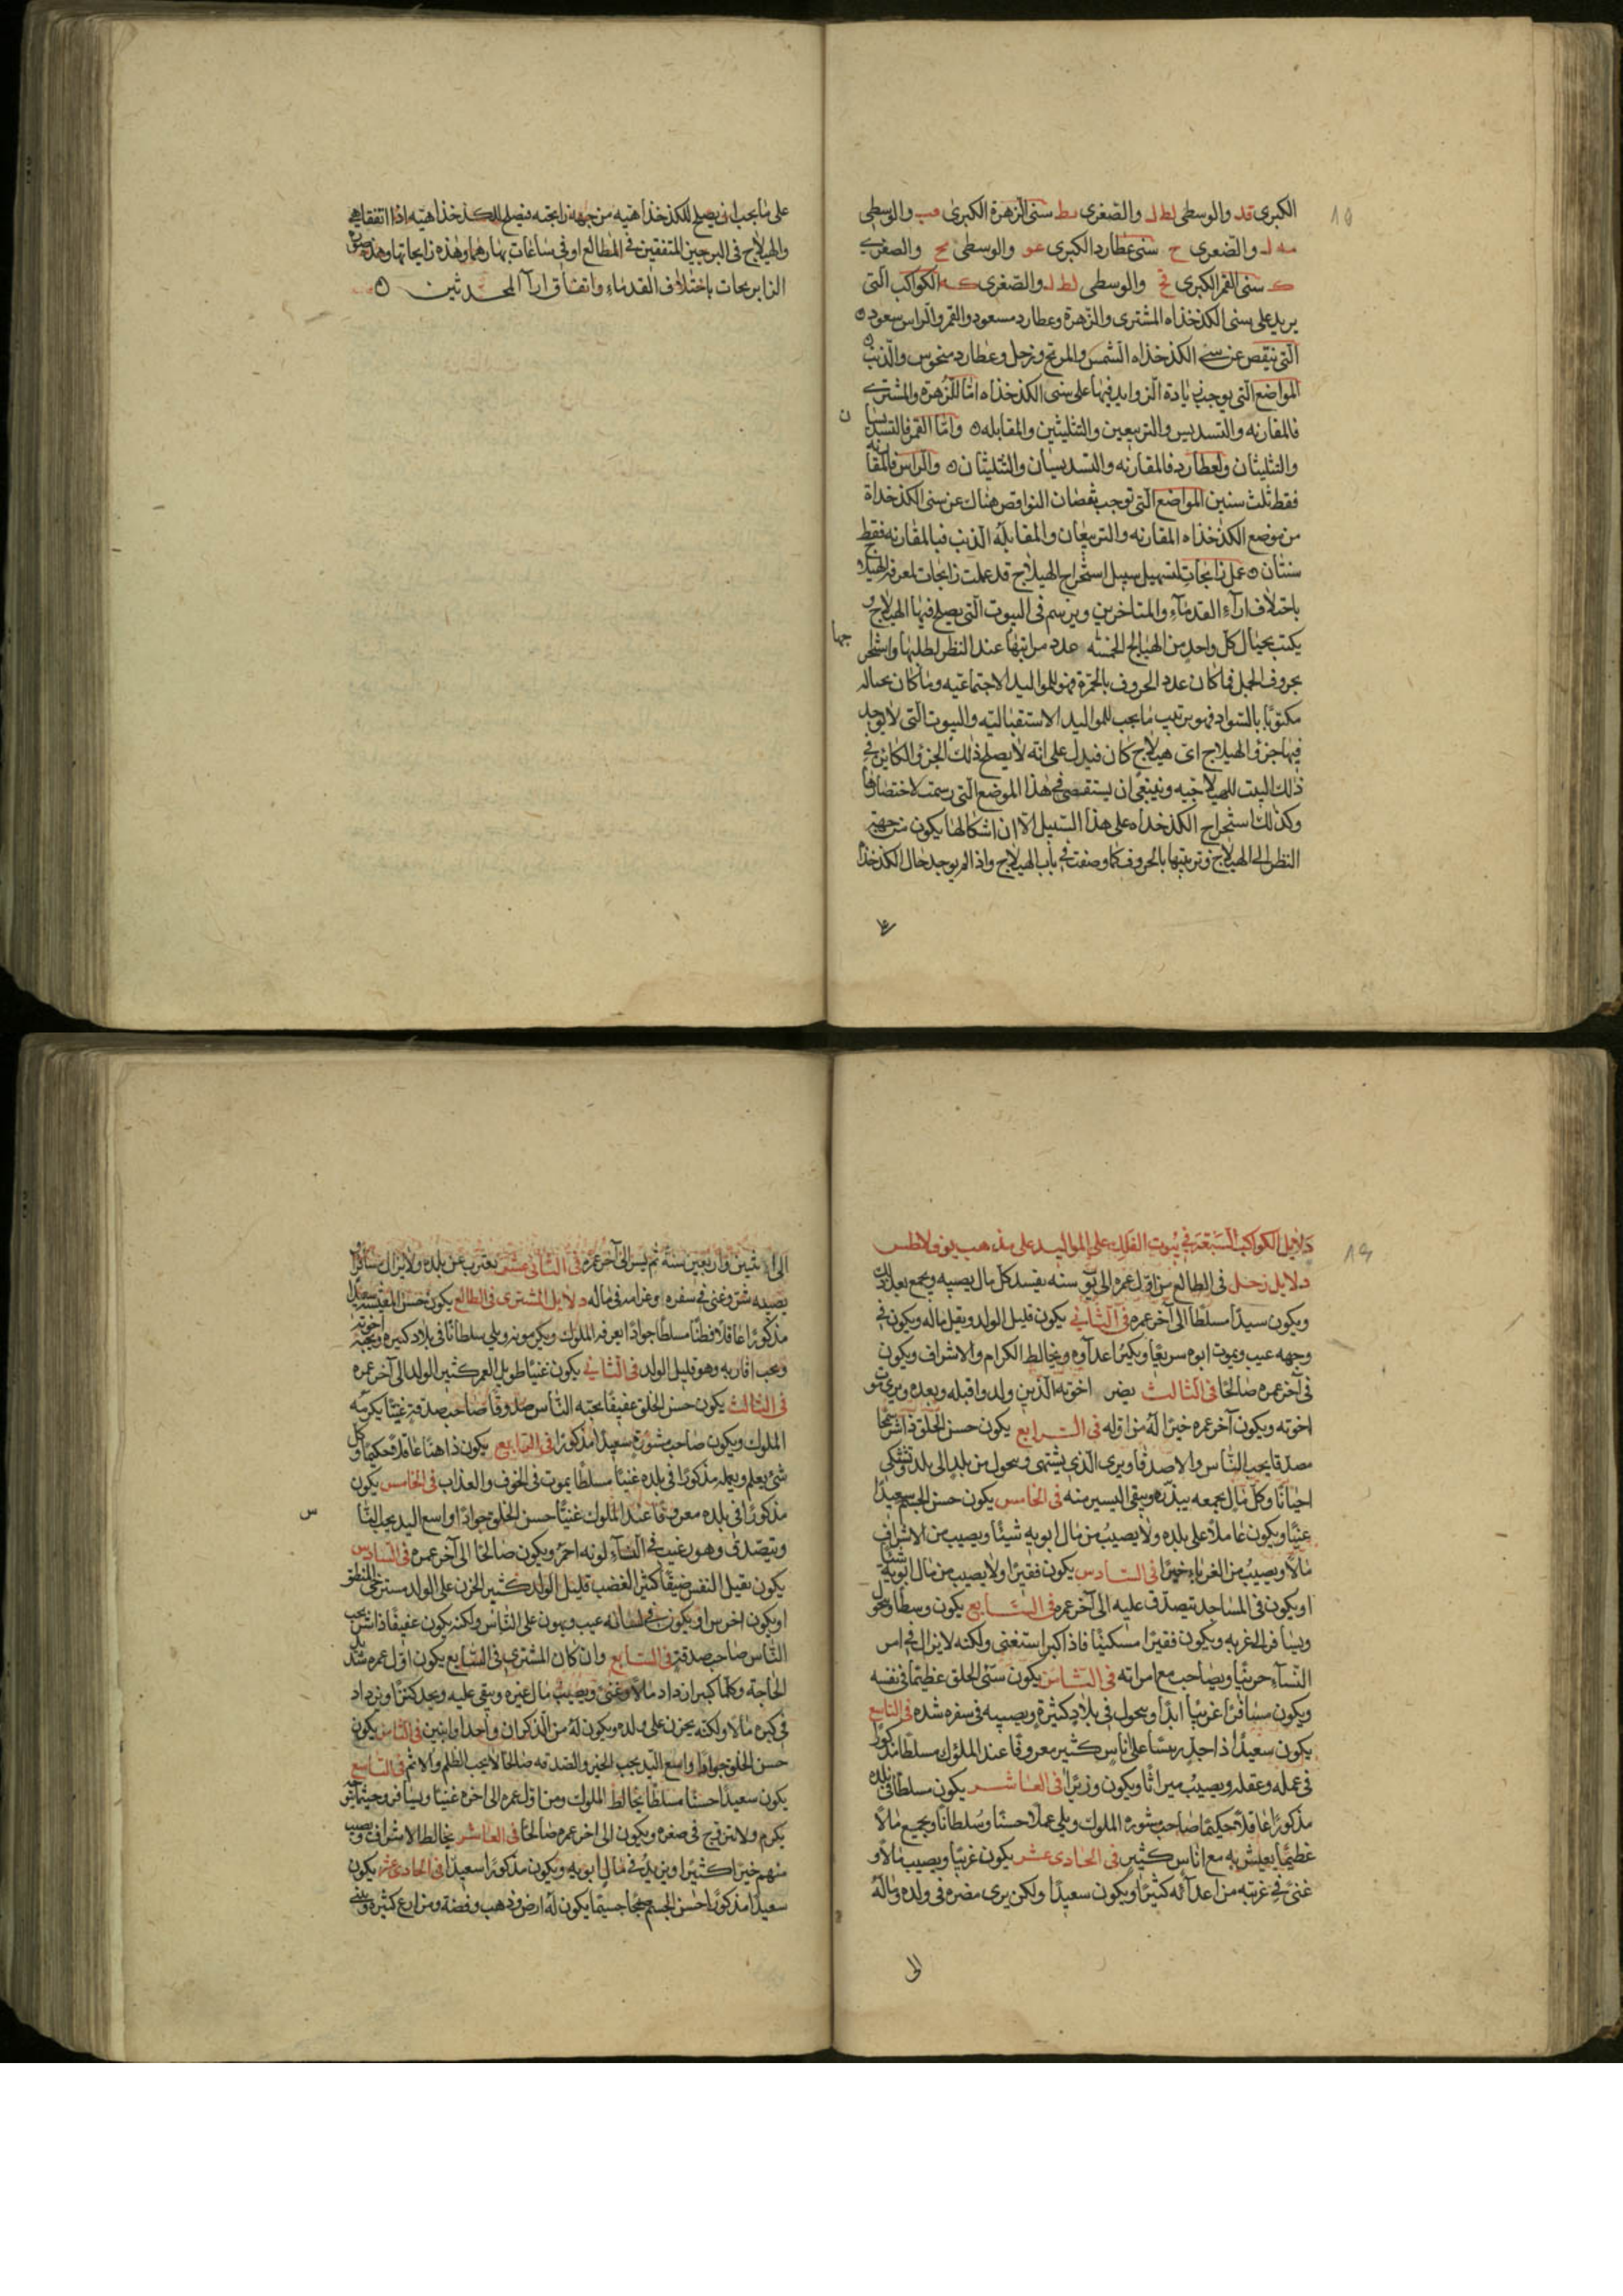 ١٥
الكبرى قد والوسطى لط ل والصغرى نط سنى الزهرة الكبرى فب والوسطى
مه ل والصغرى ح سنى عطارد الكبرى عو والوسطى مح والصغرى
ك سنى القمر الكبرى قح والوسطى لط ل والصغرى كه الكواكب التى
يزيد على سنى الكدخذاه المشترى والزهرة وعطارد مسعود والقمر والراس سعود
التى تنقص عن سنى الكدخذاه الشمس والمريخ وزحل وعطارد منحوس والذنب
المواضع التى يوجب زيادة الزوايد فيها على سنى الكدخذاه امّا للزهرة والمشترى
فالمقارنه والتسديس والتربيعين والتثليثين والمقابله وامّا القمر فالتسديسان
والتثليثان ولعطارد فالمقارنه والتسديسان والتثليثان والراس فالمقارنه
فقط ثلث سنين المواضع التى توجب نقصان النواقص هناك عن سنى الكدخداة
من موضع الكدخذاه المقارنه والتربيعان والمقابلة الذنب فبالمقارنه فقط
سنتان عمل زايجات لتسهيل سبيل استخراج الهيلاج قد عملت زايجات لمعرفة الهيلاج
باختلاف ارآء القدمآء والمتاخرين ويرسم فى البيوت التى يصلح فيها الهيلاج و
يكتب بحيال كل واحد من الهيالج الخمسه عدد مراتبها عند النظر لطلبها واستخراجها
بحروف الجمل فما كان عدد الحروف بالحمرة فهو للمواليد الاجتماعيه وما كان بحياله
مكتوبًا بالسواد فهو ترتيب ما يجب للمواليد الاستقباليّه والبيوت التى لا يوجد
فيها جزؤ الهيلاج اى هيلاج كان فيدل على انّه لا يصلح ذلك الجزؤ الكاين فى
ذلك البيت للهيلاجيه وينبغى ان يستقصى فى هذا الموضع التى رسمت لاختصارها
وكذلك استخراج الكدخداه على هذا السبيل الا ان اشكالها يكون من جهة
النظر الى الهيلاج وترتيبها بالحروف كما وصفت فى باب الهيلاج واذا لم يوجد حال الكدخذاه
على ما يجب ان يصلح للكدخذاهيّه من جهة زايجته فيصلح للكدخذاهيّه اذا اتفقا هو
والهيلاج فى البرجين المتفقين فى المطالع او فى ساعات نهارهما وهذه زايجاتها وهذه صورة
الزايرجات باختلاف القدماء واتفاق ارآ المحدثين
١٦
دلايل الكواكب السبعة فى بيوت الفلك على المواليد على مذهب يوفولاطس
دلايل زحل فى الطالع من اوّل عمره الى سنه يفسد كل مال يصيبه ويجمع بعد ذلك
ويكون سيدًا مسلطا الى آخر عمره فى الثانى يكون قليل الولد ويقل ماله ويكون فى
وجهه عيب ويموت ابوه سريعًا ويكثر اعدآوه ويخالط الكرام والاشراف ويكون
فى آخر عمره صالحًا فى الثالث يضر اخوته الذين ولدوا قبله وبعده ويرى موت
اخوته ويكون آخر عمره خيرًا له من اوله فى الرابع يكون حسن الخلق
مصدقا يحب الناس والاصدقا ويرى الذى يشتهى ويحول من بلد الى بلد ويشتكى
احيانًا وكل مال يجمعه يبذره ويبقى اليسير منه فى الخامس يكون حسن الجسم سعيدًا
غنيًا ويكون عاملًا على بلده ولا يصيب من مال ابويه شيئًا ويصيب من الاشراف
مالًا ويصيب من الغرباء خيرًا فى السادس يكون فقيرًا ولا يصيب من مال ابويه شيئًا
او يكون فى المساجد يتصدّق عليه الى آخر عمره فى السابع يكون وسطًا ويحول
ويسافر الى الغربه ويكون فقيرًا مسكينًا فاذا كبر استغنى ولكنه لا يزال فى امر
النسآء حريصًا ويصاحب مع امراته فى الثامن يكون سيّئ الخلق عظيمًا فى نفسه
ويكون مسافرًا غريبًا ابدًا ويحول فى بلاد كثيرة ويصيبه فى سفره شده فى التاسع
يكون سعيدًا ذا جد رئيسًا على اناس كثير معروفًا عند الملوك مسلطًا مذكورًا
فى عمله وعقله ويصيب ميراثًا ويكون وزيرًا فى العاشر يكون مسلطًا فى بلده
مذكورًا عاقلًا حكيمًا صاحب مشورة الملوك ويلى عملًا حسنًا وسلطانًا ويجمع مالًا
عظيمًا يعيش به مع اناس كثير فى الحادى عشر يكون غريبًا ويصيب مالًا و
غنى فى غربته من اعدآئه كثيرًا ويكون سعيدًا ولكن يرى مضره فى ولده وماله
الى
الى اثنين واربعين سنة ثم يسر الى آخر عمره فى الثانى عشر يغترب عن بلده ولا يزال مسافرًا
يصيبه شر وغنى فى سفره وغرامه فى ماله دلايل المشترى فى الطالع يكون حسن المعيشه سعيدًا
مذكورًا عاقلًا فطنًا مسلطًا جوادًا يعرفه الملوك ويكرمونه ويلى سلطانًا فى بلاد كبيرة ويحبه اخوته
ويحب اقاربه وهو قليل الولد فى الثانى يكون غنيًا طويل العمر كثير الولد الى آخر عمره
فى الثالث يكون حسن الخلق عفيفًا يحبّه الناس صدوقًا صاحب صدقة غنيًا يكرمه
الملوك ويكون صاحب مشورة سعيدًا مذكورًا فى الرابع يكون ذا هنًا عاقلًا حكيمًا وكل
شئ يعلم ويعمله مذكورًا فى بلده غنيًا مسلطًا يموت فى الخوف والعذاب فى الخامس يكون
مذكورًا فى بلده معروفًا عند الملوك غنيًا حسن الخلق جوادًا واسع اليد يحب الناس
ويتصدق وهو رغيب فى النسآء لونه احمر ويكون صالحًا الى آخر عمره فى السادس
يكون ثقيل النفس ضيقًا كثير الغضب قليل الولد كثير الحزن على الولد مسترخى المنطق
او يكون اخرس او يكون فى لسانه عيب ويهون على الناس ولكنه يكون عفيفًا يحب
الناس صاحب صدقة فى السابع وان كان المشترى فى السابع يكون اوّل عمره شديد
الحاجة وكلما كبر ازداد مالًا وغنى ويصيب مال غيره ويبقى عليه ويجد كنزًا ويزداد
فى كبره مالًا ولكنه يحزن على ولده ويكون له من الذكران واحدًا واثنين فى الثامن يكون
حسن الخلق جوادا واسع اليد يحب الخير والصدقه صالحًا لا يحب الظلم والاثم فى التاسع
يكون سعيدًا حسنًا مسلطًا يخالط الملوك ومن اوّل عمره الى اخره غنيًا ويسافر وحيثما يتوجه
يكرم ولا يتزوج فى صغره ويكون الى اخر عمره صالحًا فى العاشر يخالط الاشراف ويصيب
منهم خيرًا كثيرًا ويزيد فى مال ابويه ويكون مذكورًا سعيدًا فى الحادى عشر يكون
سعيدًا مذكورًا حسن الجسم صحيحًا جسيمًا يكون له ارض وذهب وفضة ومزارع كثيرة ويبنى